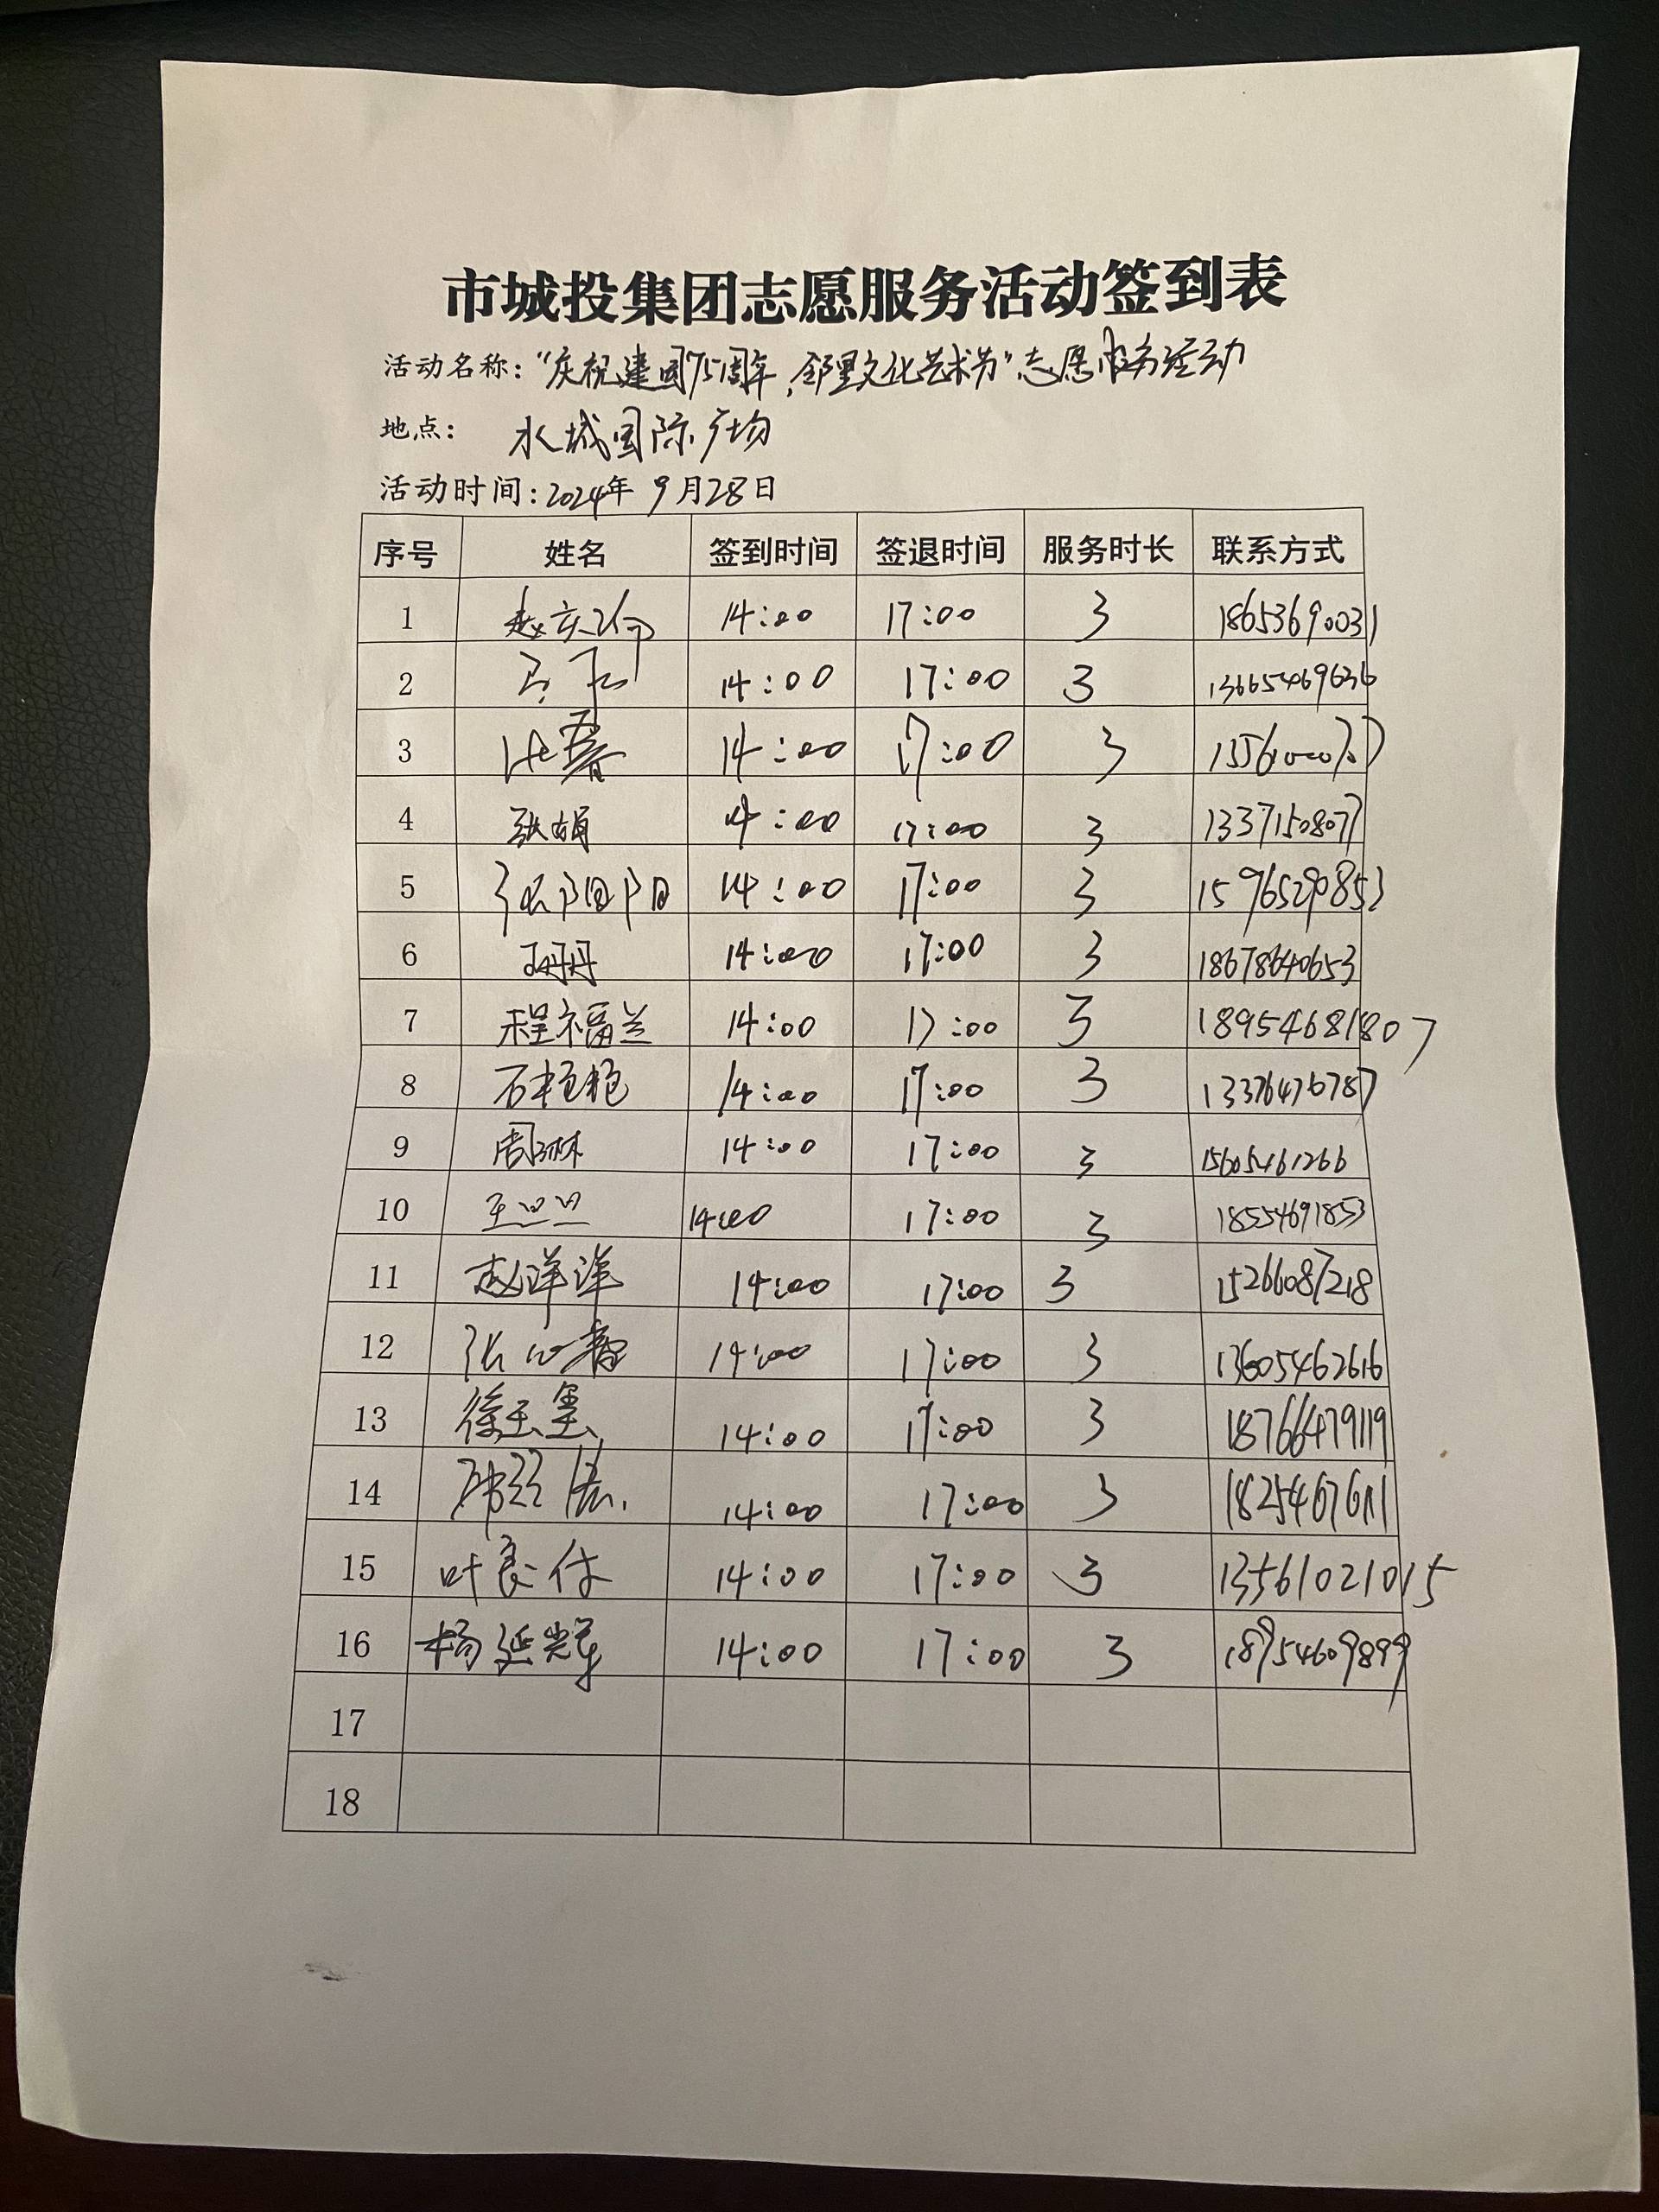 市城投集团志愿服务活动签到表
活动名称："庆祝建国75周年,邻里文化艺术节"志愿服务活动
地点： 水城国际广场
活动时间：2024年 9月28日
序号 姓名 签到时间 签退时间 服务时长 联系方式
1 赵庆 14:00 17:00 3 18653690031
2 14:00 17:00 3 13665469636
3 14:00 17:00 3
4 张娟 14:00 17:00 3 13371508077
5 张阳阳 14:00 17:00 3 15965290853
6 丹丹 14:00 17:00 3 18678640653
7 程福兰 14:00 17:00 3 18954681807
8 石艳艳 14:00 17:00 3 13376476787
9 周琳 14:00 17:00 3 15605461266
10 王 14:00 17:00 3 18554691853
11 赵洋洋 14:00 17:00 3 15266087218
12 张心睿 14:00 17:00 3 13605462616
13 徐玉墨 14:00 17:00 3 18766479119
14 14:00 17:00 3 18254676111
15 叶良付 14:00 17:00 3 13561021015
16 杨延辉 14:00 17:00 3 18954609899
17
18